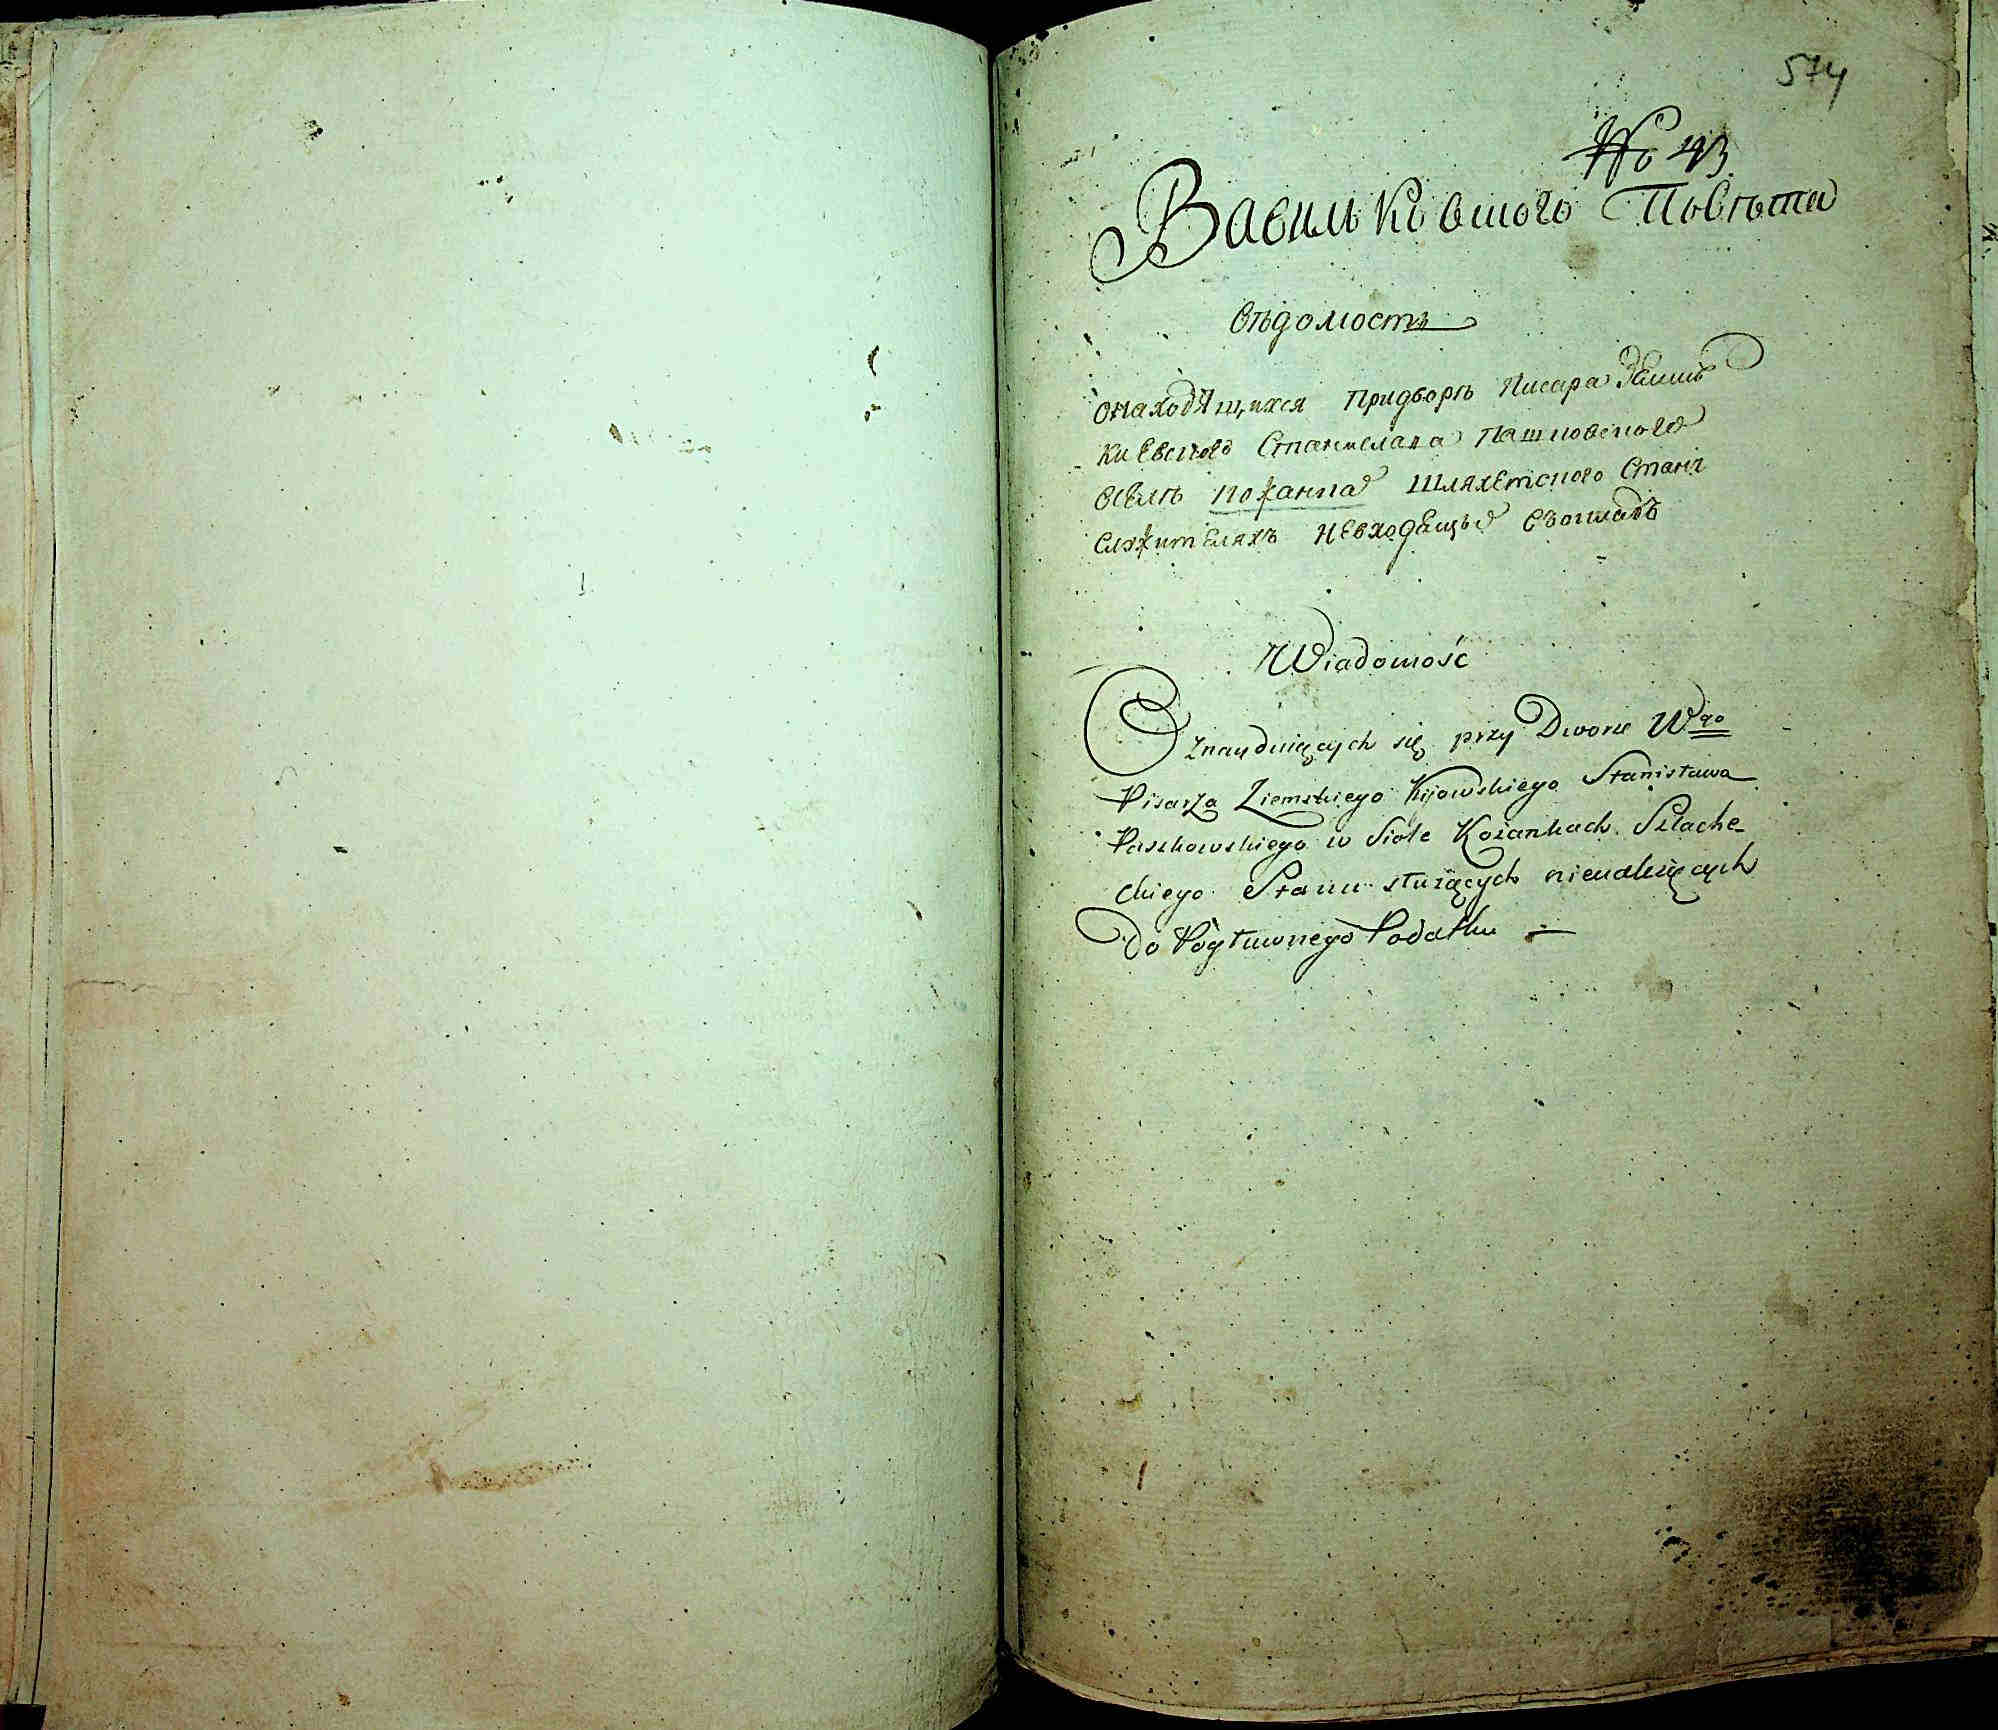 574
No 43
Васильковского Повѣта
вѣдомость
онаходящихся придворѣ писара Земш
киевского Станислава Пашковского
вселѣ кожанка шляхетского стану
служителяхъ невходящые въокладъ
Wiadomość
O znayduiących się przy Dworze Wgo
Pisarza Ziemskiego Kijowskiego Stanisława
Paszkowskiego w Siole Kożankach Szlache-
ckiego Stanu służących nienależących
do Pogłuwnego Podatku